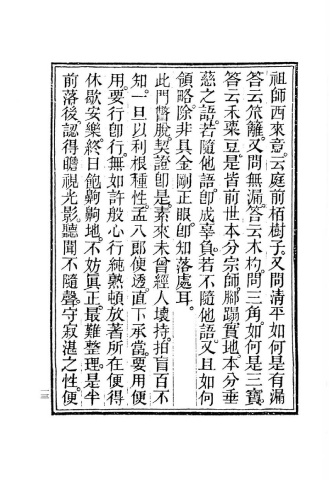 祖師西來意。云庭前栢樹子。又問清平如何是有漏
答云笊籬。又問無漏。答云木杓。問三角。如何是三寶。
答云禾粟豆。是皆前世本分宗師。脚蹋實地本分垂
慈之語。若隨他語。卽成辜負。若不隨他語。又且如何
領略。除非具金剛正眼。卽知落處耳。
此門瞥脫。契證卽是。素來未曾經人壞持。拍盲百不
知。一旦以利根種性。孟八郎便透。直下承當。要用便
用。要行卽行。無如許般心行。純熟頓放著所在。便得
休歇安樂。終日飽齁齁地。不妨眞正。最難整理。是半
前落後。認得瞻視光影。聽聞不隨聲。守寂湛之性。便
三